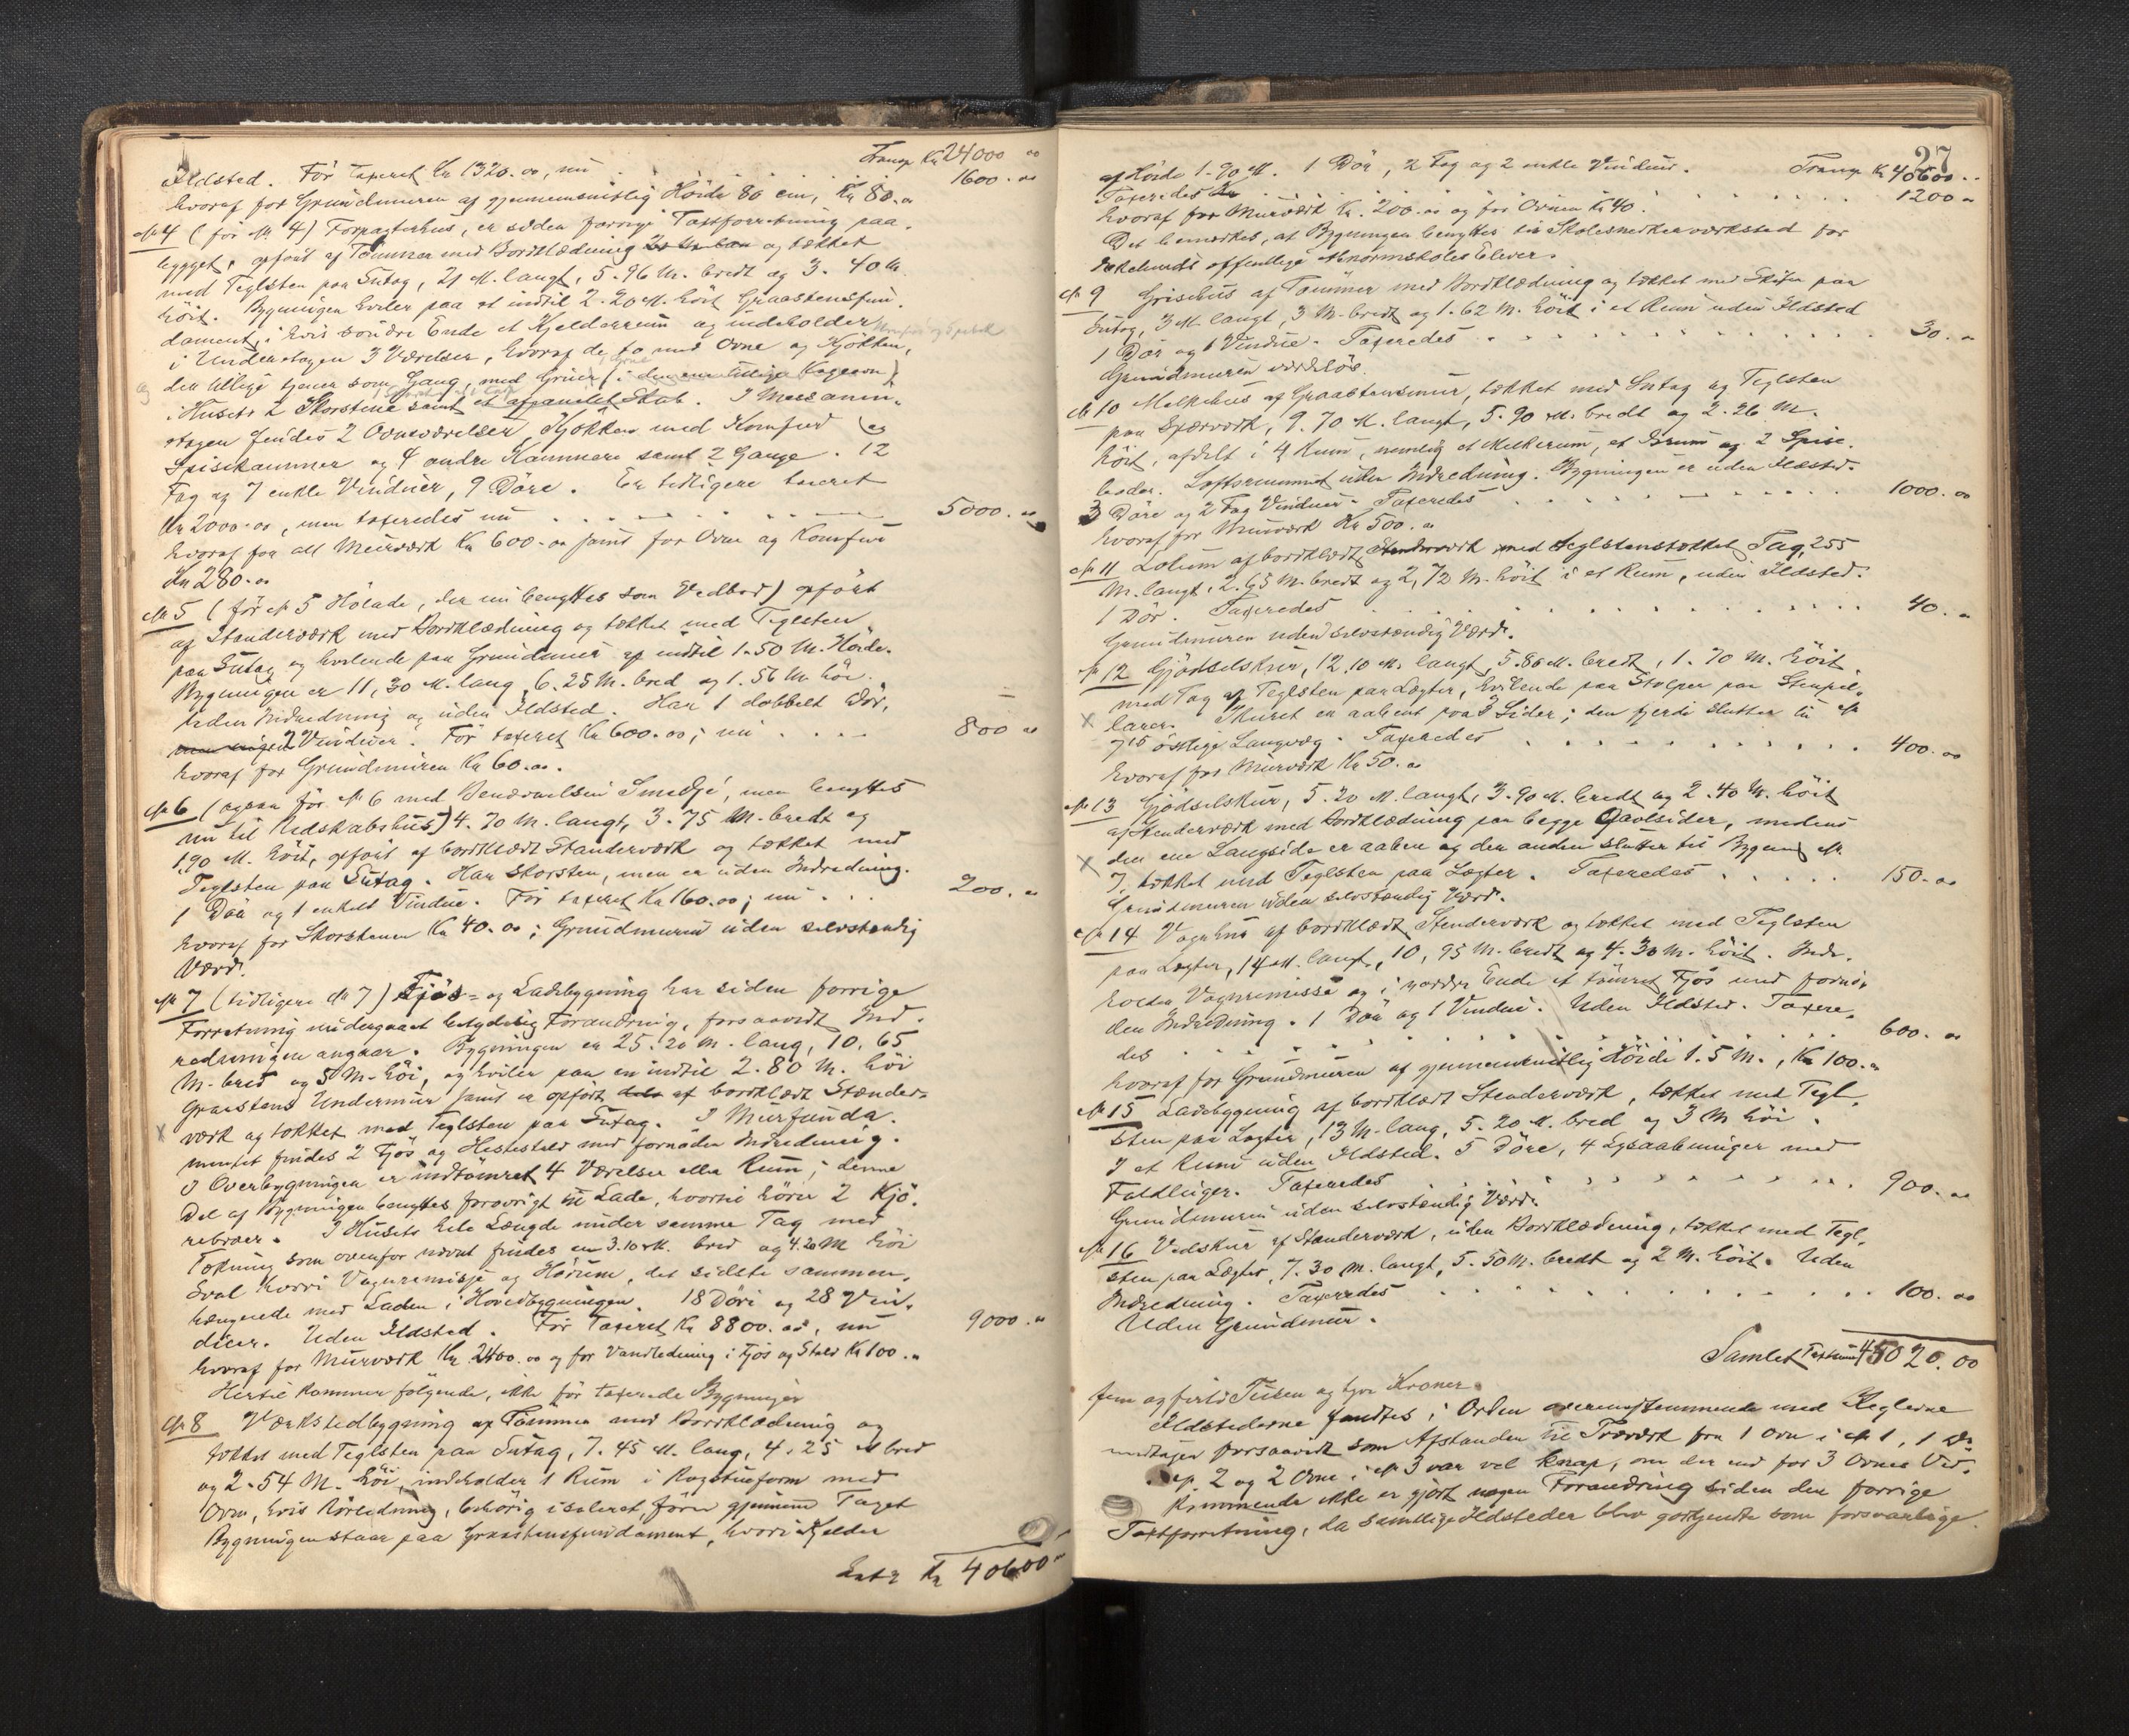 Transp Kr 24000 00
Ildsted. För taxeret Kr 1320.00, nu . . . 1600.00
hvoraf for Grundmuren af gjennemsnitlig Höide 80 cm, Kr 80.00
№ 4 (för № 4) Forpagterhus, er siden forrige Taxtforretning paa-
bygget, opfört af Tömmer med Bordklædning og tækket
med Teglsten paa Sutag, 21 M. langt, 5.96 M. bredt og 3.40 M.
höit. Bygningen hviler paa et indtil 2.20 M. höit Graastensfun-
dament, i hvis söndre Ende et Kjelderrum og indeholder
i Underetagen 3 Værelser, hvoraf de to med Ovne og Kjökken,
det tillige tjener som Gang, med Gruer (i den ene tillige Kogeovn)
i Husets 2 Skorstene samt et afpanelet Skab. I Messanin-
etagen findes 2 Ovnsværelser, Kjökken med Komfur og
Spisekammer og 4 andre Kammere samt 2 Gange. 12
Fag og 7 enkle Vinduer, 9 Döre. Er tidligere taxeret
Kr 2000.00, men taxeredes nu . . . 5000.00
hvoraf for alt Murværk Kr 600.00 samt for Ovne og Komfur
Kr 280.00
№ 5 (för № 5 Hölade, der nu benyttes som Vedbod) opfört
af Stænderværk med Bordklædning og tækket med Teglsten
paa Sutag og hvilende paa Grundmur af indtil 1.50 M. Höide.
Bygningen er 11,30 M. lang, 6.25 M. bred og 1.56 M. höi.
Uden Indredning og uden Ildsted. Har 1 dobbelt Dör,
men ingen 2 Vinduer. För taxeret Kr 600.00; nu . . . . 800 00
hvoraf for Grundmuren Kr 60.00.
№ 6 (ogsaa för № 6 med Benævnelsen Smedje, men benyttes
nu til Redskabshus) 4.70 M. langt, 3.75 M. bredt og
1,90 M. höit, opfört af bordklædt Stænderværk og tækket med
Teglsten paa Sutag. Har Skorsten, men er uden Indredning.
1 Dör og 1 enkelt Vindue. För taxeret Kr 160.00; nu . . . 200.00
hvoraf for Skorstenen Kr 40.00; Grundmuren uden selvstændig
Værd.
№ 7 (tidligere № 7) Fjös- og Ladebygning har siden forrige
Forretning undergaaet betydelig Forandring, forsaavidt Ind-
redningen angaar. Bygningen er 25.20 M. lang, 10.65
M. bred og 5 M. höi, og hviler paa en indtil 2.80 M. höi
Graastens Undermur samt er opfört af bordklædt Stænder-
værk og tækket med Teglsten paa Sutag. I Murfunda-
mentet findes 2 Fjös og Hestestald med fornöden Indredning.
I Overbygningen er indtömret 4 Værelser eller Rum; denne
Del af Bygningen benyttes forövrigt til Lade, hvortil hörer 2 Kjö-
rebroer. I Husets hele Længde under samme Tag med
Tækning som ovenfor nævnt findes en 3.10 M. bred og 4.20 M höi
Sval hvori Vognremisse og Hörum, det sidste sammen-
hængende med Laden i Hovedbygningen. 18 Döre og 28 Vin-
duer. Uden Ildsted. För Taxeret Kr 8800.00, nu 9000.00
hvoraf for Murværk Kr. 2400.00 og for Vandledning i Fjös og Stald Kr 100.00
Hertil kommer fölgende, ikke för taxerede Bygninger
№ 8 Værkstedbygning af Tömmer med Bordklædning og
tækket med Teglsten paa Sutag, 7.45 M. lang, 4.25 M bred
og 2.54 M. höi, indeholder 1 Rum i Rögstueform med
Ovn, hvis Rörledning, behörig isoleret, förer gjennem Taget
Bygningen staar paa Graastensfundament, hvori Kjelder
Lat. Kr 40600 00
27
af Höide 1.90 M. 1 Dör, 2 Fag og 2 enkle Vinduer. Transp Kr 40600..
Taxeredes . . . 1200 00
hvoraf for Murværk Kr. 200.00 og for Ovnen Kr 40.
Det bemærkes, at Bygningen benyttes til Skolesnedkerværksted for
offentlige Abnormskoles Elever.
№ 9 Grisehus af Tömmer med Bordklædning og tækket med Skifer paa
Sutag, 3 M. langt, 3 M. bredt og 1.62 M. höit i et Rum uden Ildsted
1 Dör og 1 Vindue. Taxeredes . . . 30.00
Grundmuren værdilös.
№ 10 Melkehus af Graastensmur, tækket med Sutag og Teglsten
paa Sperværk, 9.70 M. langt, 5.90 M. bredt og 2.26 M.
höit, afdelt i 4 Rum, nemlig et Melkerum, et Isrum og 2 Spise-
boder. Loftsrummet uden Indredning. Bygningen er uden Ildsted.
3 Döre og 2 Fag Vinduer. Taxeredes . . . 1000.00
hvoraf for Murværk Kr 500.00
№ 11 Lokum af bordklædt Stænderværk med Teglstenstækket Tag, 2.55
M. langt, 2.65 M. bredt og 2,72 M. höit i et Rum, uden Ildsted.
1 Dör. Taxeredes . . . 40.00
Grundmuren uden selvstændig Værd.
№ 12 Gjödselskur, 12.10 M. langt, 5.86 M. bredt, 1.70 M. höit
med Tag af Teglsten paa Lægter, hvilende paa Stolper paa Stenpil-
larer. Skuret er aabent paa 3 Sider; den fjerde slutter til №
7's östlige Langvæg. Taxeredes . . . 400.00
hvoraf for Murværk Kr 50.00
№ 13 Gjödselskur, 5.20 M. langt, 3.90 M. bredt og 2.40 M. höit
af Stenderværk med Bordklædning paa begge Gavlsider, medens
den ene Langside er aaben og den anden slutter til Bygning №
7, tækket med Teglsten paa Lægter. Taxeredes . . . 150.00
Grundmuren uden selvstændig Værd.
№ 14 Vognhus af bordklædt Stenderværk og tækket med Teglsten
paa Lægter, 14 M. langt, 10,95 M. bredt og 4.30 M. höit. Inde-
holder Vognremisse og i nordre Ende et tömret Fjös med fornö-
den Indredning. 1 Dör og 1 Vindue. Uden Ildsted. Taxere-
des . . . 600.00
hvoraf for Grundmuren af gjennemsnitlig Höide 1.5 M., Kr 100.00
№ 15 Ladebygning af bordklædt Stenderværk, tækket med Tegl-
sten paa Lægter, 13 M. lang, 5.20 M. bred og 3 M höi.
I et Rum uden Ildsted. 5 Döre, 4 Lysaabninger med
Faldluger. Taxeredes . . . 900.00
Grundmuren uden selvstændig Værd.
№ 16 Vedskur af Stænderværk, uden Bordklædning, tækket med Tegl-
sten paa Lægter, 7.30 M. langt, 5.50 M. bredt og 2 M. höit. Uden
Indredning. Taxeredes . . . 100.00
Uden Grundmur.
Samlet Taxtsum 45020.00
fem og firti Tusen og tyve Kroner.
Ildstederne fandtes i Orden overensstemmende med Reglerne
undtagen forsaavidt som Afstanden til Træværk fra 1 Ovn i № 1, 1 Do
i № 2 og 2 Ovne i № 3 var vel knap, om der end for 3 Ovnes Ved-
kommende ikke er gjort nogen Forandring siden den forrige
Taxtforretning, da samtlige Ildsteder blev godkjendte som forsvarlige.